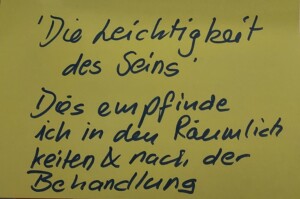 'Die Leichtigkeit
des Seins'
Das empfinde
ich in den Räumlich
keiten & nach der
Behandlung